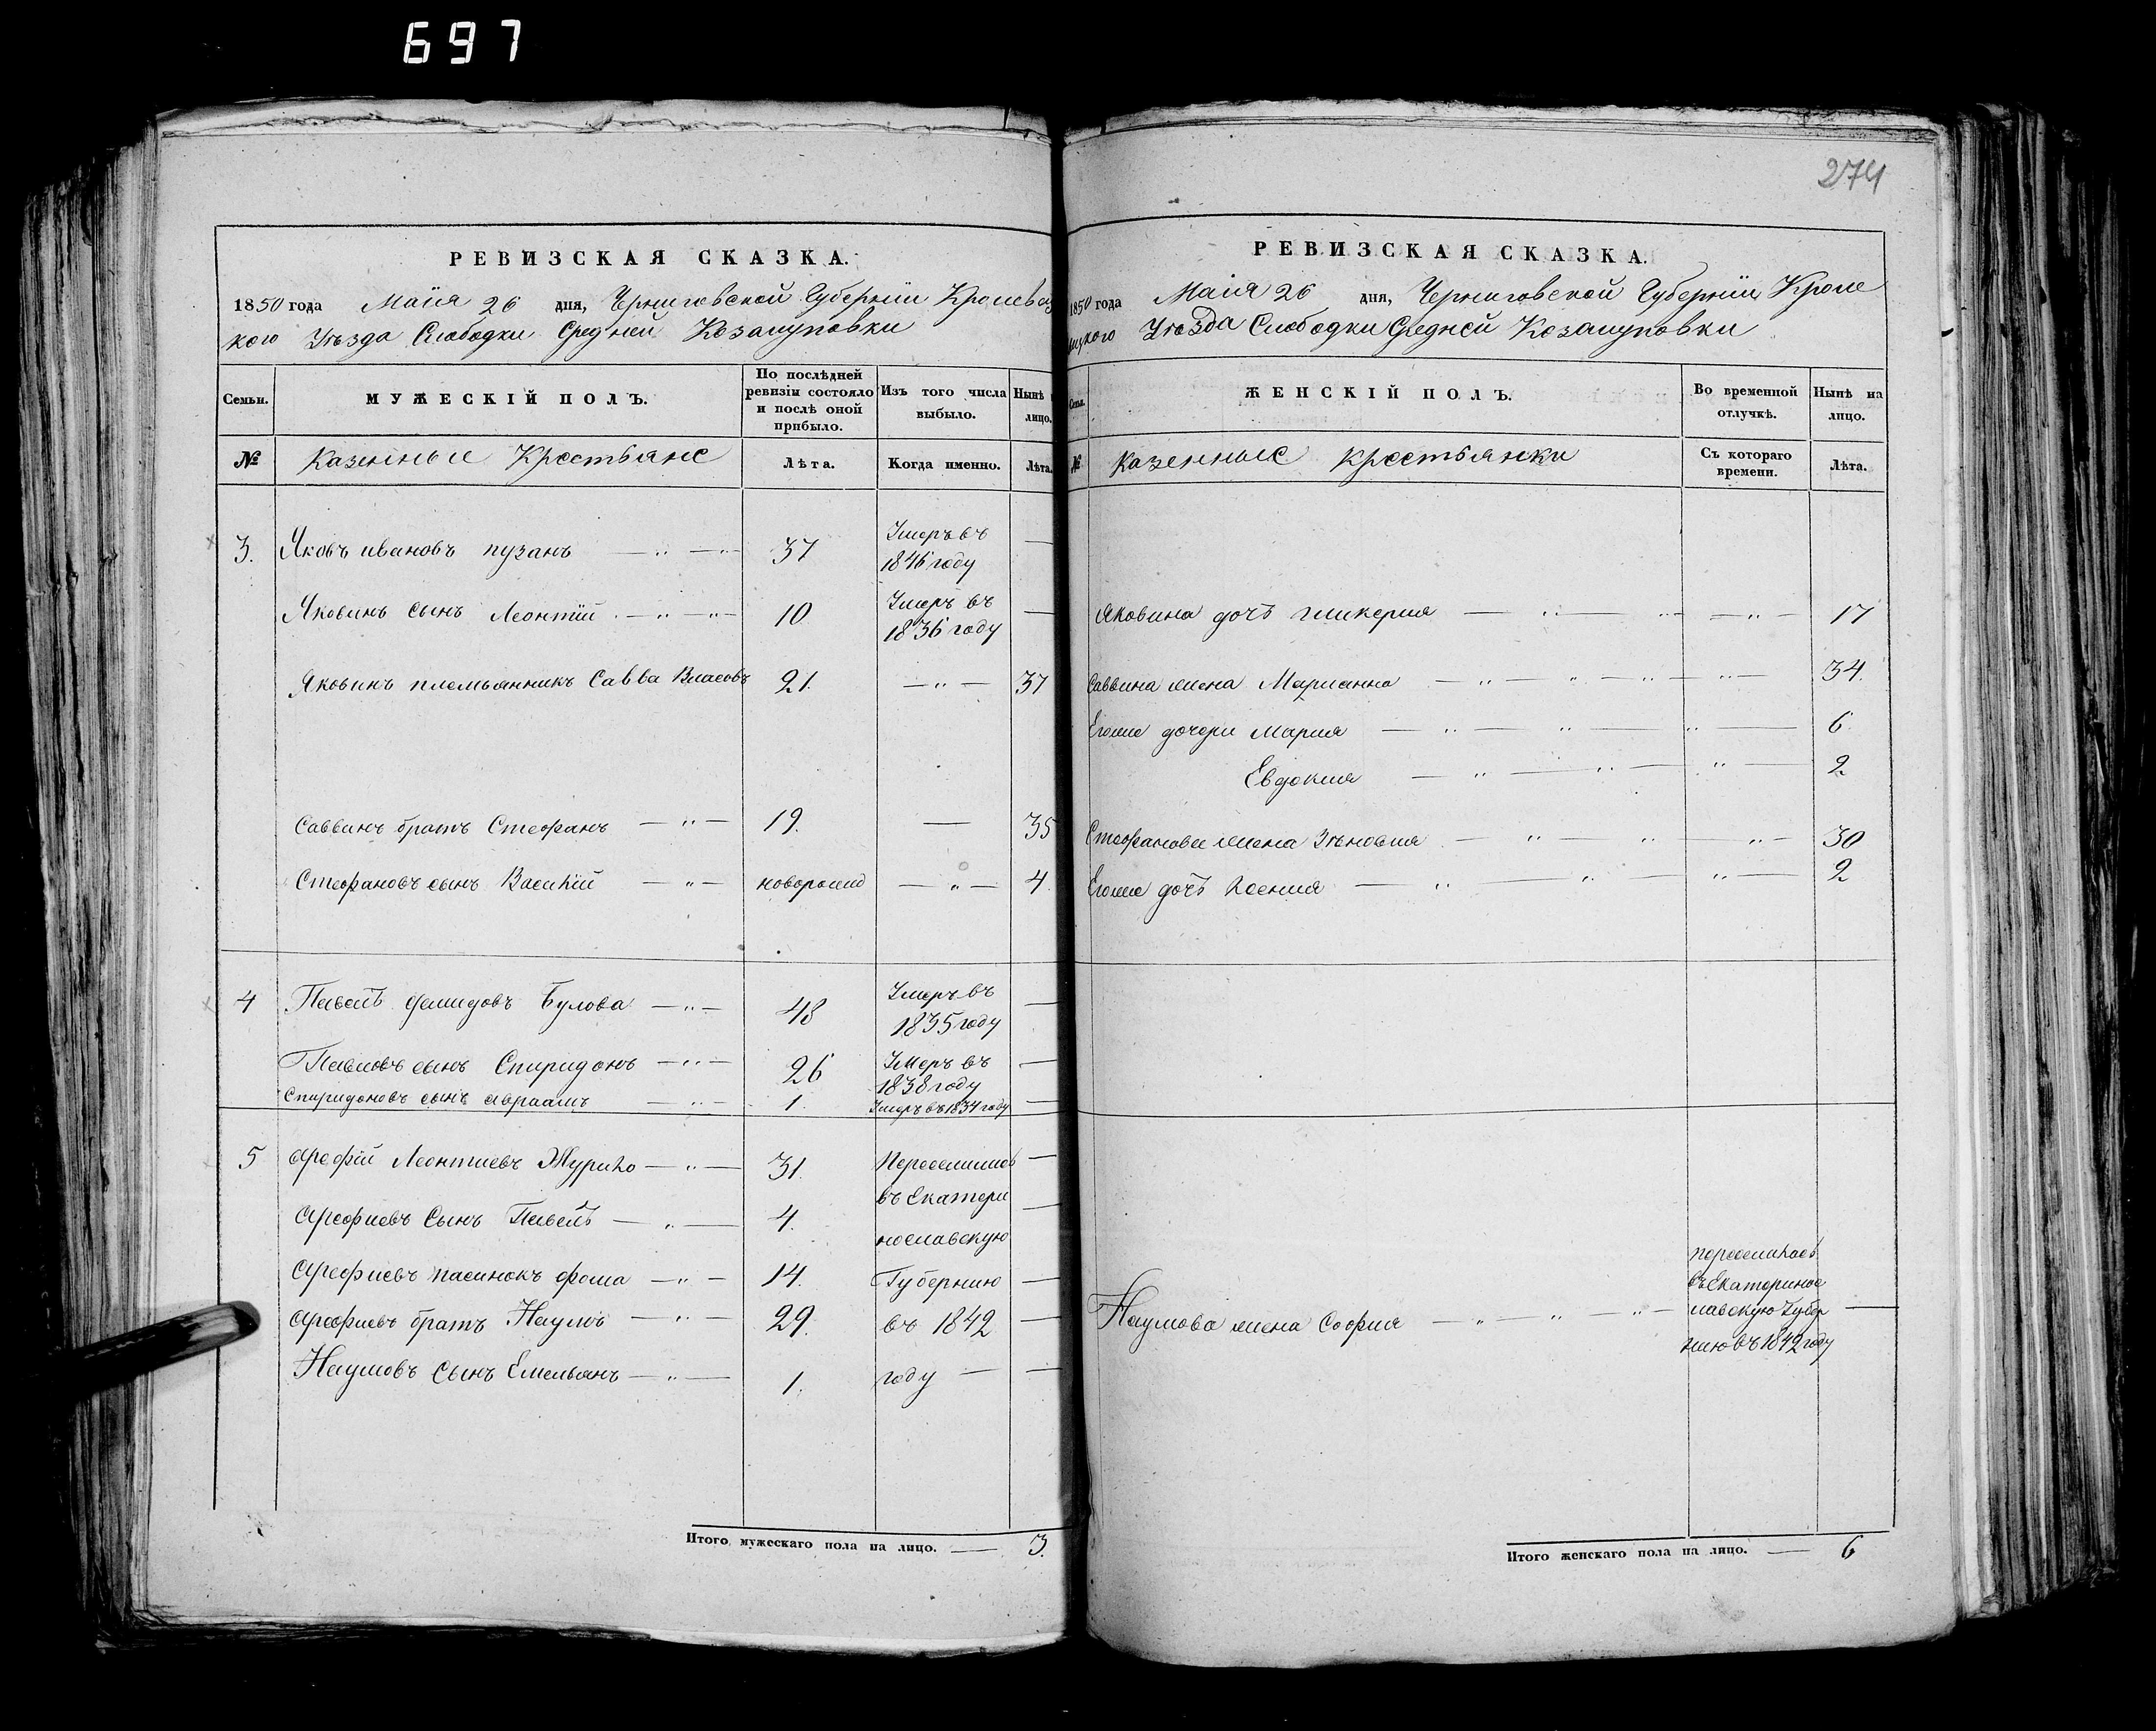 697
РЕВИЗСКАЯ СКАЗКА.
1850 года Маія 26 дня, Черниговской Губерніи Кролевец
кого Уѣзда Слободки Средней Козацуповки
Семьи. МУЖЕСКІЙ ПОЛЪ. По послѣдней ревизіи состояло и послѣ оной прибыло. Изъ того числа выбыло. Нынѣ лицо.
№ Казенные Крестьяне Лѣта. Когда именно. Лѣта.
3. Яковъ ивановъ пузанъ 37 Умеръ въ 1846 году —
Яковинъ сынъ Леонтій 10 Умеръ въ 1836 году —
Яковинъ племьянникъ Савва Власовъ 21. — 37
Саввинъ братъ Стефанъ 19. — 35
Стефановъ сынъ Василій новорожд — 4
4 Павелъ демидовъ Булова 48 Умеръ въ 1835 году —
Павловъ сынъ Спиридонъ 26 Умеръ въ 1838 году —
Спиридоновъ сынъ авраамъ 1. Умеръ въ 1834 году —
5 Арефій Леонтиевъ Журихо 31. Переселился —
въ Екатери
Арефиевъ Сынъ Павелъ 4. нославскую —
Арефиевъ пасинокъ фома 14. Губернию —
Арефиевъ братъ Наумъ 29. въ 1842 —
Наумовъ сынъ Емельянъ 1. году —
Итого мужескаго пола на лицо. — 3.
274
РЕВИЗСКАЯ СКАЗКА.
1850 года Маія 26 дня, Черниговской Губерніи Кроле
вецкого Уѣзда Слободки Средней Козацуповки
Семьи. ЖЕНСКІЙ ПОЛЪ. Во временной отлучкѣ. Нынѣ на лицо.
№ Казенные крестьянки Съ котораго времени. Лѣта.
Яковина дочь гликерия — 17
Саввина жена Марианна — 34.
Егоже дочери Мария — 6
Евдокия — 2
Стефанова жена Зѣновия — 30
Егоже дочь Ксения — 2
Наумова жена София — переселилась
въ Екатеринос
лавскую Губер —
нию въ 1842 году
Итого женскаго пола на лицо. — 6